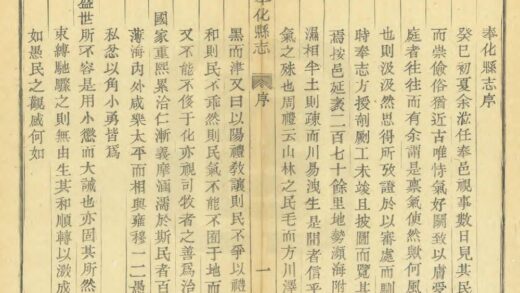 奉化縣志序
癸巳初夏余涖任奉邑視事數日見其民
而崇儉俗猶近古唯恃氣好鬬致以膚愛
庭者往往而有余謂是稟氣使然歟何風
也則汲汲然思得所攷證於以審處而馴
時奉志方授剞劂工未竣且披圖而覽其
焉按邑延袤二百七十餘里地勢瀕海附
濕相半土則疎而川易洩生是閒者信乎
氣之殊也周禮云山林之民毛而方川澤
奉化縣志
序
一
黑而津又曰以陽禮敎讓則民不爭以
和則民不乖然則民氣不能不囿于地而
又不能不侈于化亦視司牧者之善爲治
國家重熙累洽仁漸義摩涵濡於斯民者百
薄海內外咸樂太平而相與雍穆一二愚
私忿以角小勇皆爲
盛世所不容是用小懲而大誡也亦固其所然
束縛馳驟之則無由生其和順轉以激成
如愚民之觀感何如